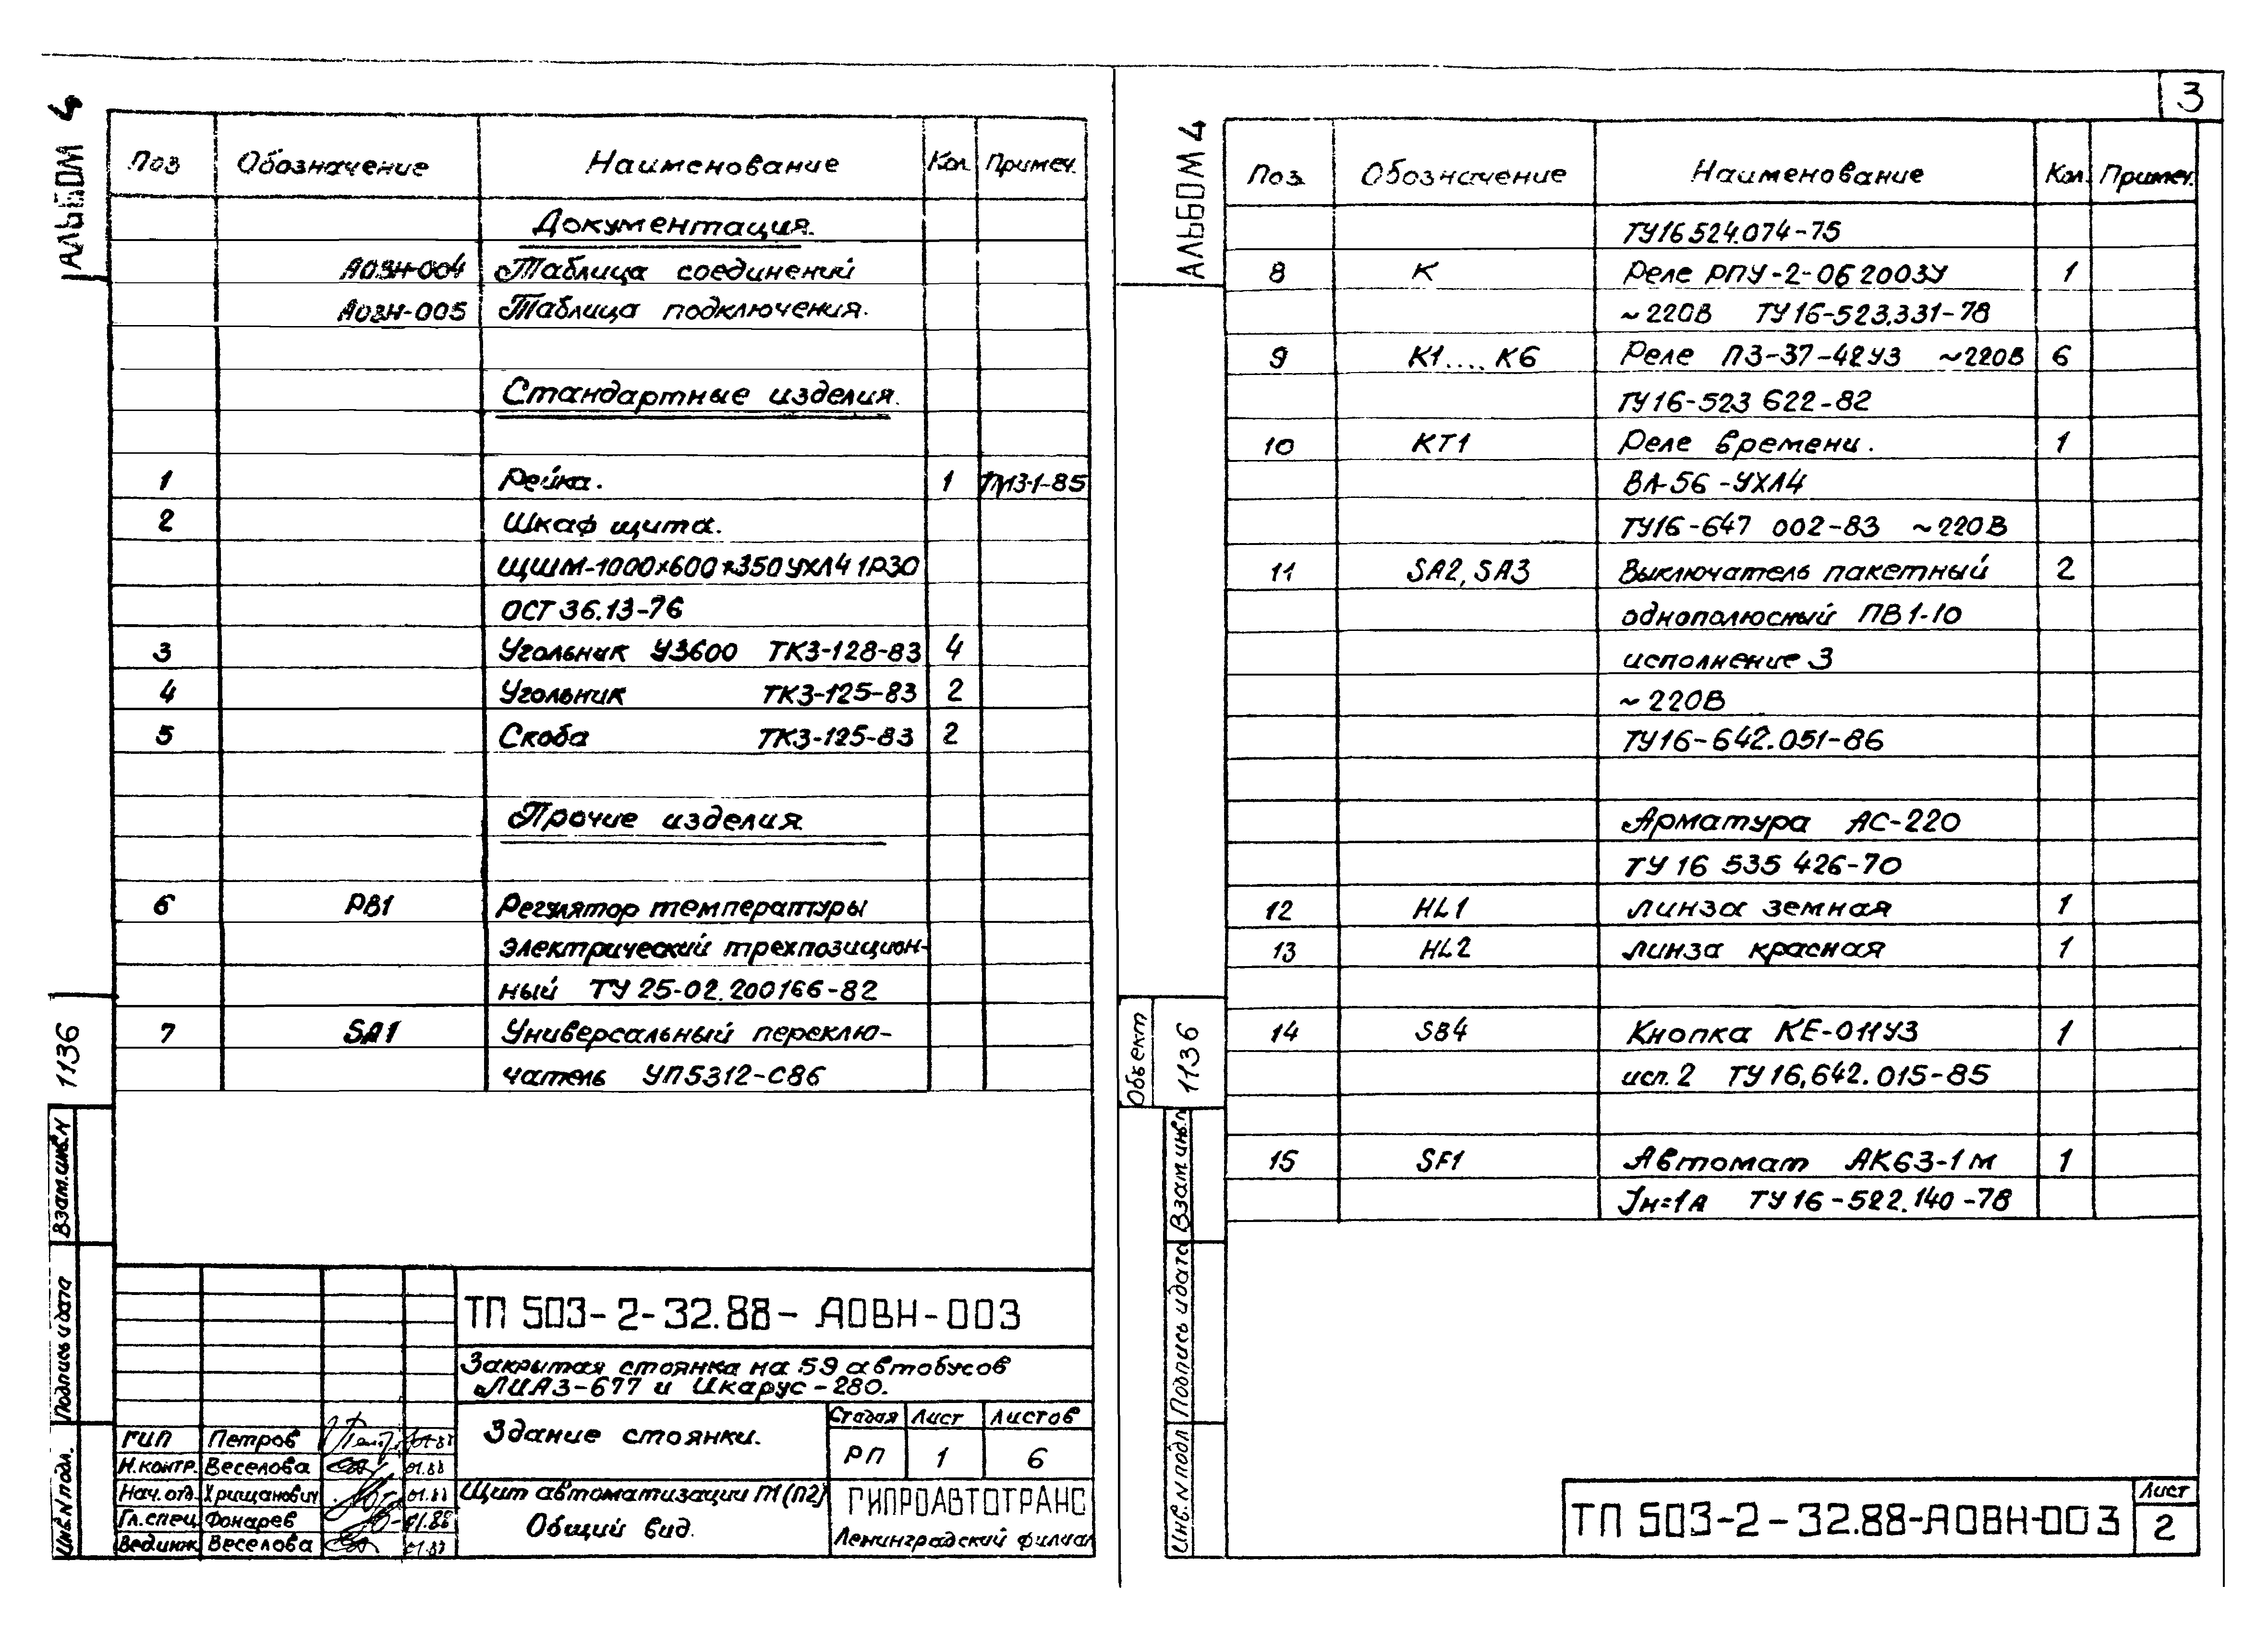 Альбом 4
Поз Обозначение Наименование Кол. Примеч.
Документация.
АОВН-004 Таблица соединений
АОВН-005 Таблица подключения.
Стандартные изделия.
1 Рейка. 1 ТМ3-1-85
2 Шкаф щита.
ЩШМ-1000×600×350УХЛ4 1Р30
ОСТ 36.13-76
3 Угольник У3600 ТК3-128-83 4
4 Угольник ТК3-125-83 2
5 Скоба ТК3-125-83 2
Прочие изделия
6 РВ1 Регулятор температуры
электрический трехпозицион-
ный ТУ 25-02.200166-82
7 SA1 Универсальный переклю-
чатель УП5312-С86
1136
Взам.инв.N
Подпись и дата
Инв.N подл.
ТП 503-2-32.88-АОВН-003
Закрытая стоянка на 59 автобусов
ЛИАЗ-677 и Икарус-280.
Здание стоянки.
Стадия Лист Листов
РП 1 6
Щит автоматизации П1(П2)
Общий вид.
ГИПРОАВТОТРАНС
Ленинградский филиал
ГИП Петров 01.88
Н.контр. Веселова 01.88
Нач.отд. Хрищанович 01.88
Гл.спец. Фонарев 01.88
Вед.инж. Веселова 01.88
3
Альбом 4
Поз. Обозначение Наименование Кол. Примеч.
ТУ16 524.074-75
8 К Реле РПУ-2-062003У 1
~220В ТУ16-523.331-78
9 К1....К6 Реле ПЭ-37-42У3 ~220В 6
ТУ16-523 622-82
10 КТ1 Реле времени. 1
ВЛ-56-УХЛ4
ТУ16-647 002-83 ~220В
11 SA2, SA3 Выключатель пакетный 2
однополюсный ПВ1-10
исполнение 3
~220В
ТУ16-642.051-86
Арматура АС-220
ТУ 16 535 426-70
12 HL1 линза земная 1
13 HL2 линза красная 1
14 SB4 Кнопка КЕ-011У3 1
исп. 2 ТУ16,642.015-85
15 SF1 Автомат АК63-1М 1
Jн=1А ТУ16-522.140-78
Объект
1136
Взам инв.N
Подпись и дата
Инв.N подл
ТП 503-2-32.88-АОВН-003
Лист
2